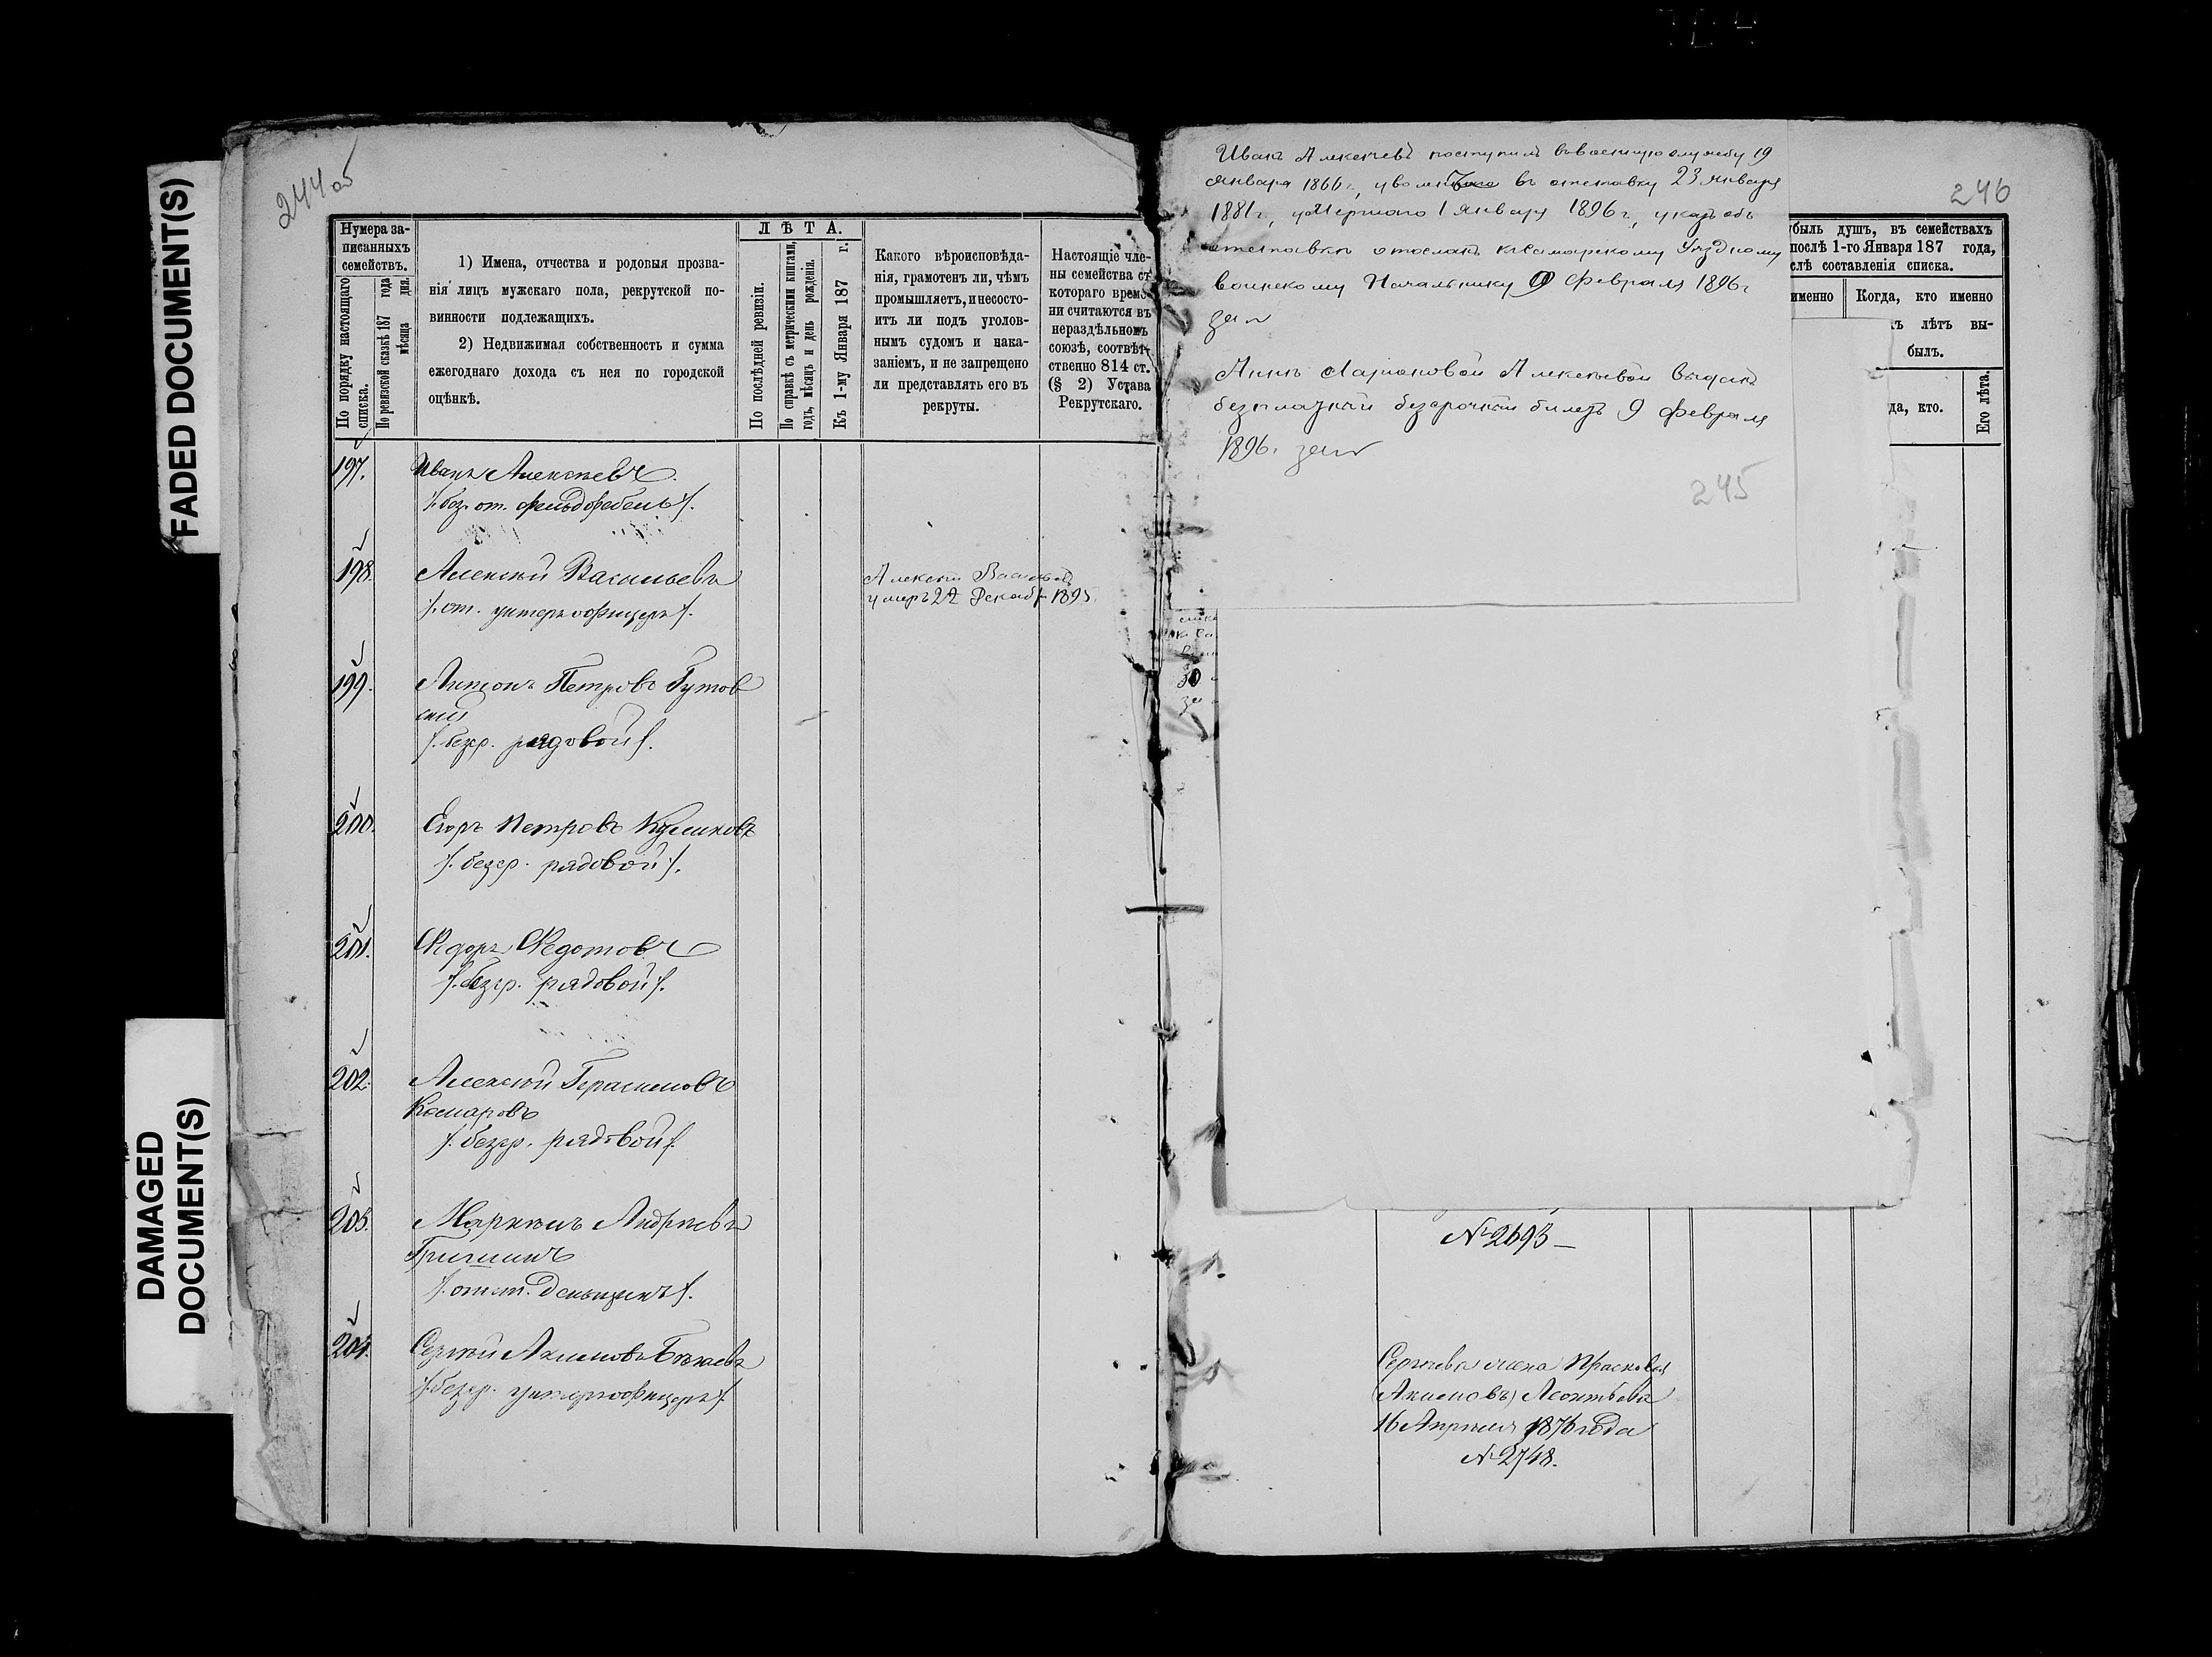 FADED DOCUMENT(S)
DAMAGED
DOCUMENT(S)
244 об
Нумера за-
писанныхъ
семействъ.
По порядку настоящаго
списка.
По ревизской сказкѣ 187 года
мѣсяца дня.
1) Имена, отчества и родовыя прозва-
нія лицъ мужскаго пола, рекрутской по-
винности подлежащихъ.
2) Недвижимая собственность и сумма
ежегоднаго дохода съ нея по городской
оцѣнкѣ.
ЛѢТА.
По послѣдней ревизіи.
По справкѣ съ метрическими книгами,
годъ, мѣсяцъ и день рожденія.
Къ 1-му Января 187 г.
Какого вѣроисповѣда-
нія, грамотенъ ли, чѣмъ
промышляетъ, и несосто-
итъ ли подъ уголов-
нымъ судомъ и нака-
заніемъ, и не запрещено
ли представлять его въ
рекруты.
Настоящіе чле-
ны семейства съ
котораго време-
ни считаются въ
нераздѣльномъ
союзѣ, соотвѣт-
ственно 814 ст.
(§ 2) Устава
Рекрутскаго.
197. Иванъ Алексѣевъ
/. без. от. фельдфебель /.
198. Алексѣй Васильевъ
/. от. унтеръ офицеръ /.
Алексѣй Васильевъ
умеръ 22 Декаб 1895
199. Антонъ Петровъ Гутов
скій
/. безср. рядовой /.
200. Егоръ Петровъ Куликовъ
/. безср. рядовой /.
201. Федоръ Федотовъ
/. безср. рядовой /.
202. Алексѣй Герасимовъ
Комаровъ
/. безср. рядовой /.
203. Маркелъ Андреевъ
Гришинъ
/. отст. деньщикъ /.
204. Сергѣй Акимовъ
/. безср. унтеръ офицеръ /.
Иванъ Алексѣевъ поступилъ въ военную службу 19
Января 1866 г., уволенъ въ отставку 23 Января
1881 г., умершаго 1 Января 1896 г., указъ объ
отставкѣ отосланъ къ Самарскому Уѣздному
воинскому Начальнику 9 Февраля 1896 г
за №
Аннѣ Ларіоновой Алексѣевой выданъ
безплатный безсрочный билетъ 9 Февраля
1896 г. за №
245
246
убыль душъ, въ семействахъ
послѣ 1-го Января 187 года,
слѣ составленія списка.
именно
Когда, кто именно
ъ лѣтъ вы-
былъ.
да, кто.
Его лѣта.
№ 2693 —
Сергѣева жена Прасковья
(Акимовъ) Леонтьева
16 Апрѣля 1876 года
№ 2748.